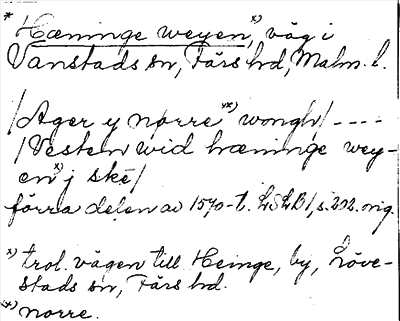 * Hæninge weyen,*) väg i
Vanstads sn, Färs hd, Malm. l.
/Ager y nørre**) wongh/ ----
/Vesten wid hæninge wey-
en*) j skē/
förra delen av 1570-t. LSLB1, s. 202. orig.
*) trol. vägen till Heinge, by, Löve-
stads sn, Färs hd.
**) norre.